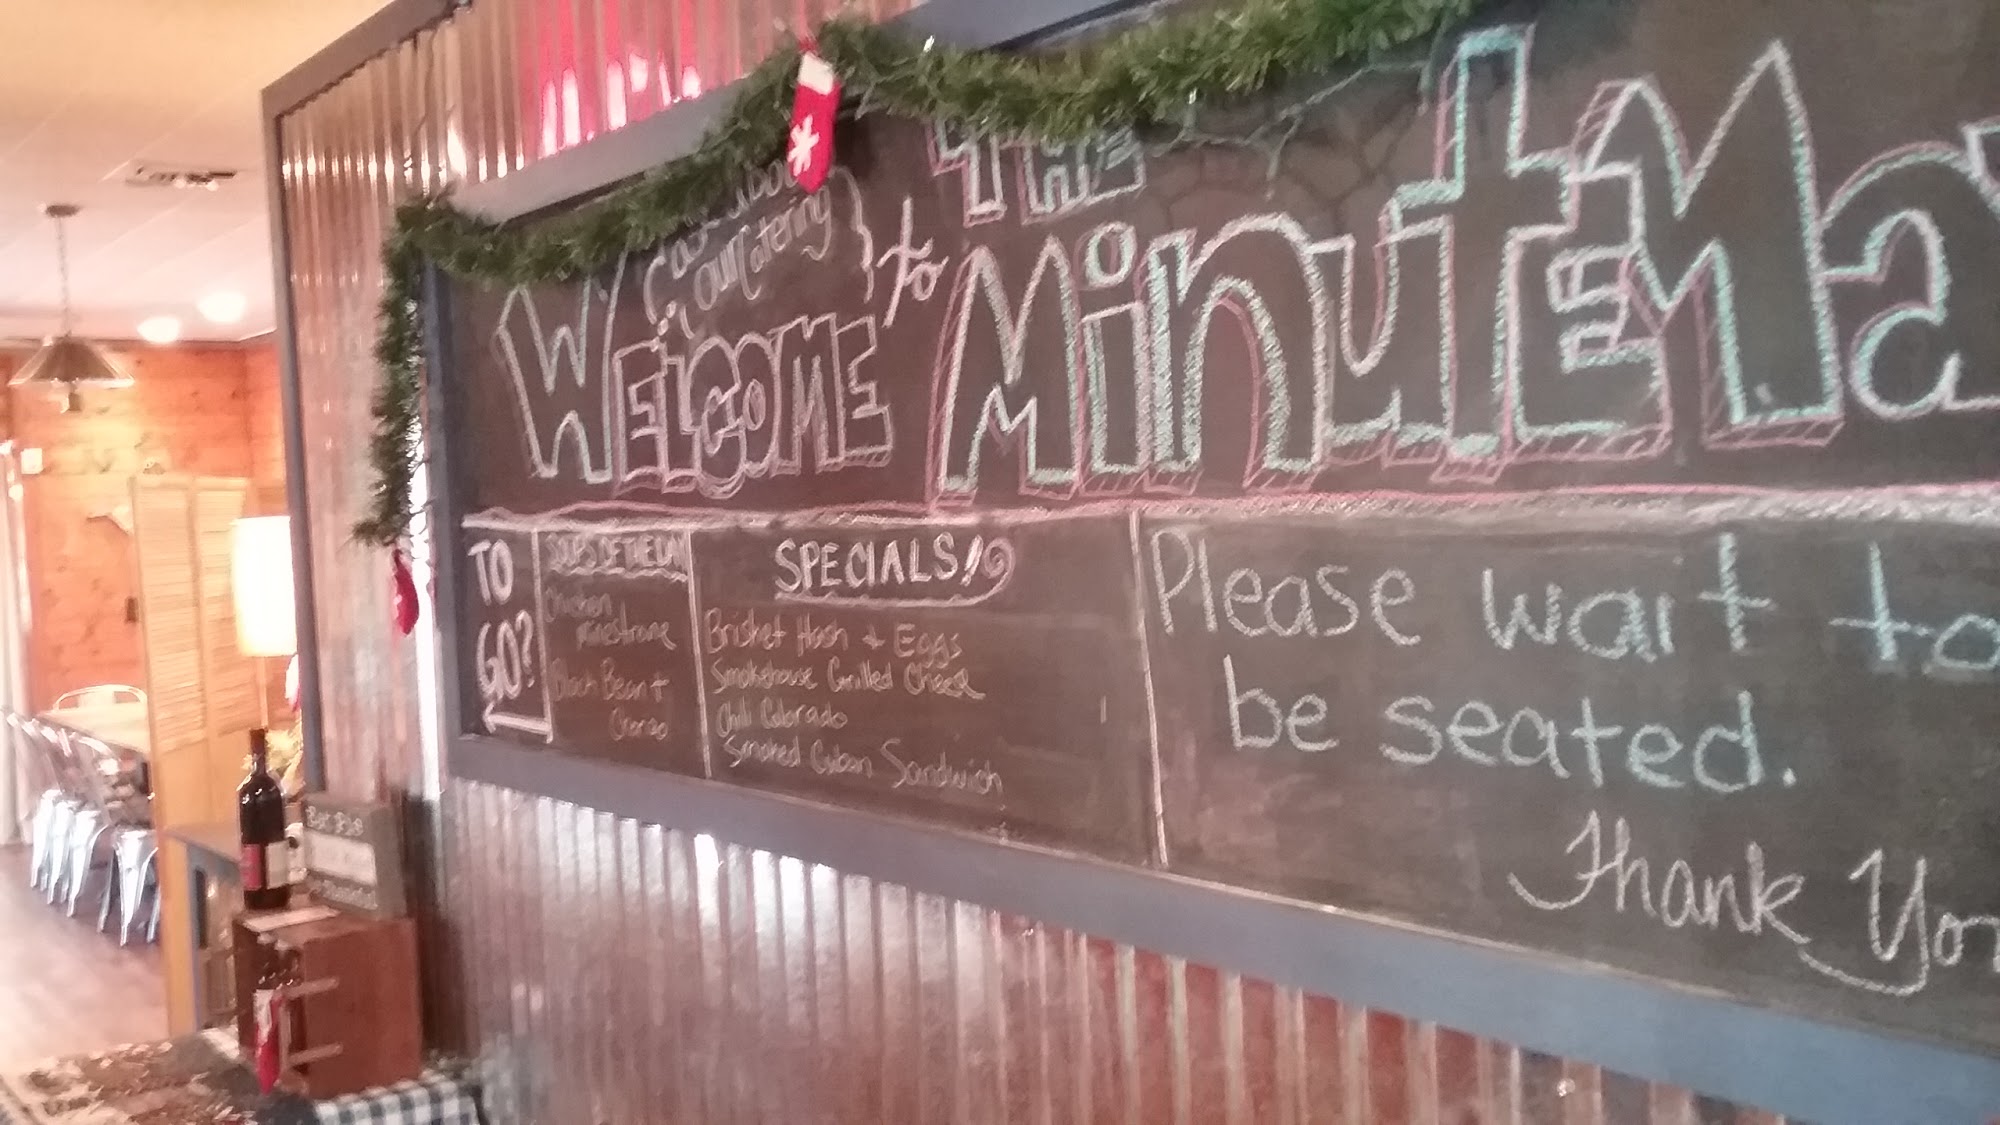 Ask about
our Catering
WELCOME to THE
MinutEMa
TO
GO?
SOUPS OF THE DAY
Chicken
Minestrone
Black Bean +
Chorizo
SPECIALS!
Brisket Hash + Eggs
Smokehouse Grilled Cheese
Chili Colorado
Smoked Cuban Sandwich
Please wait to
be seated.
Thank You